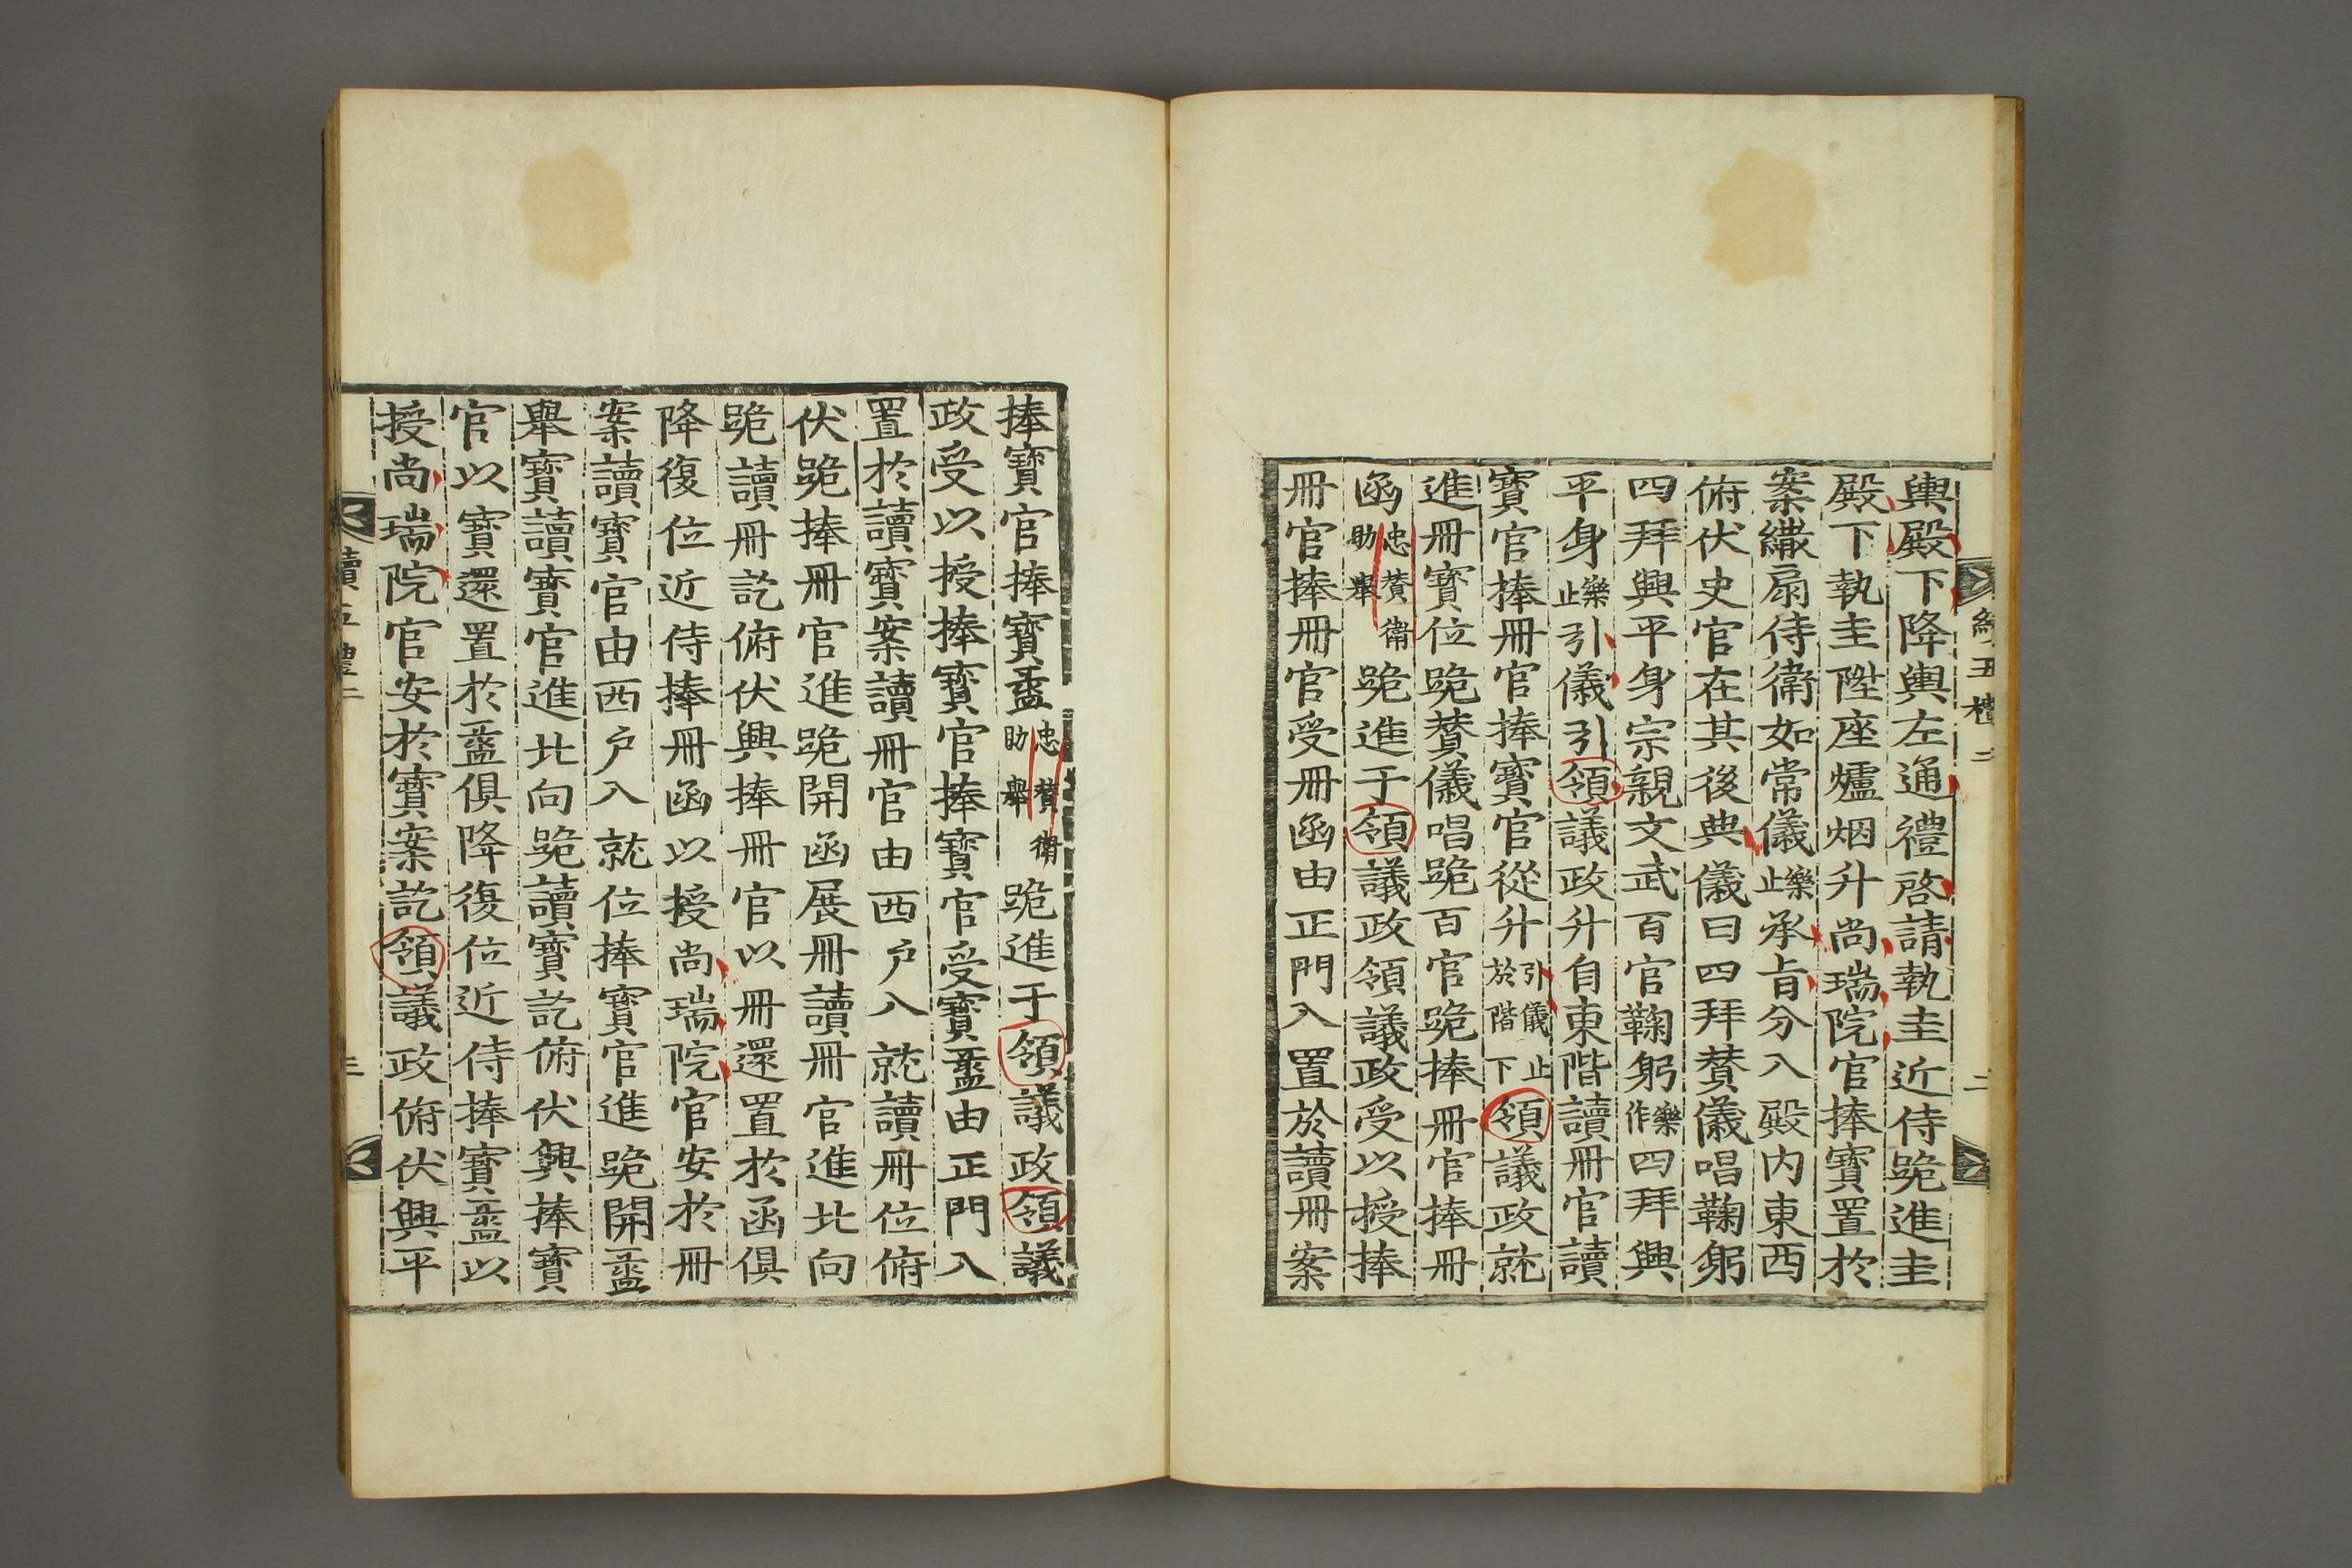 續五禮二
二
輿殿下降輿左通禮啓請執圭近侍跪進圭
殿下執圭陞座爐烟升尚瑞院官捧寶置於
案繖扇侍衛如常儀樂止承旨分入殿內東西
俯伏史官在其後典儀曰四拜贊儀唱鞠躬
四拜興平身宗親文武百官鞠躬樂作四拜興
平身樂止引儀引領議政升自東階讀冊官讀
寶官捧冊官捧寶官從升引儀止於階下領議政就
進冊寶位跪贊儀唱跪百官跪捧冊官捧冊
函忠贊衛助舉跪進于領議政領議政受以授捧
冊官捧冊官受冊函由正門入置於讀冊案
捧寶官捧寶盝忠贊衛助舉跪進于領議政領議
政受以授捧寶官捧寶官受寶盝由正門入
置於讀寶案讀冊官由西戶入就讀冊位俯
伏跪捧冊官進跪開函展冊讀冊官進北向
跪讀冊訖俯伏興捧冊官以冊還置於函俱
降復位近侍捧冊函以授尚瑞院官安於冊
案讀寶官由西戶入就位捧寶官進跪開盝
舉寶讀寶官進北向跪讀寶訖俯伏興捧寶
官以寶還置於盝俱降復位近侍捧寶盝以
授尚瑞院官安於寶案訖領議政俯伏興平
續五禮二
三